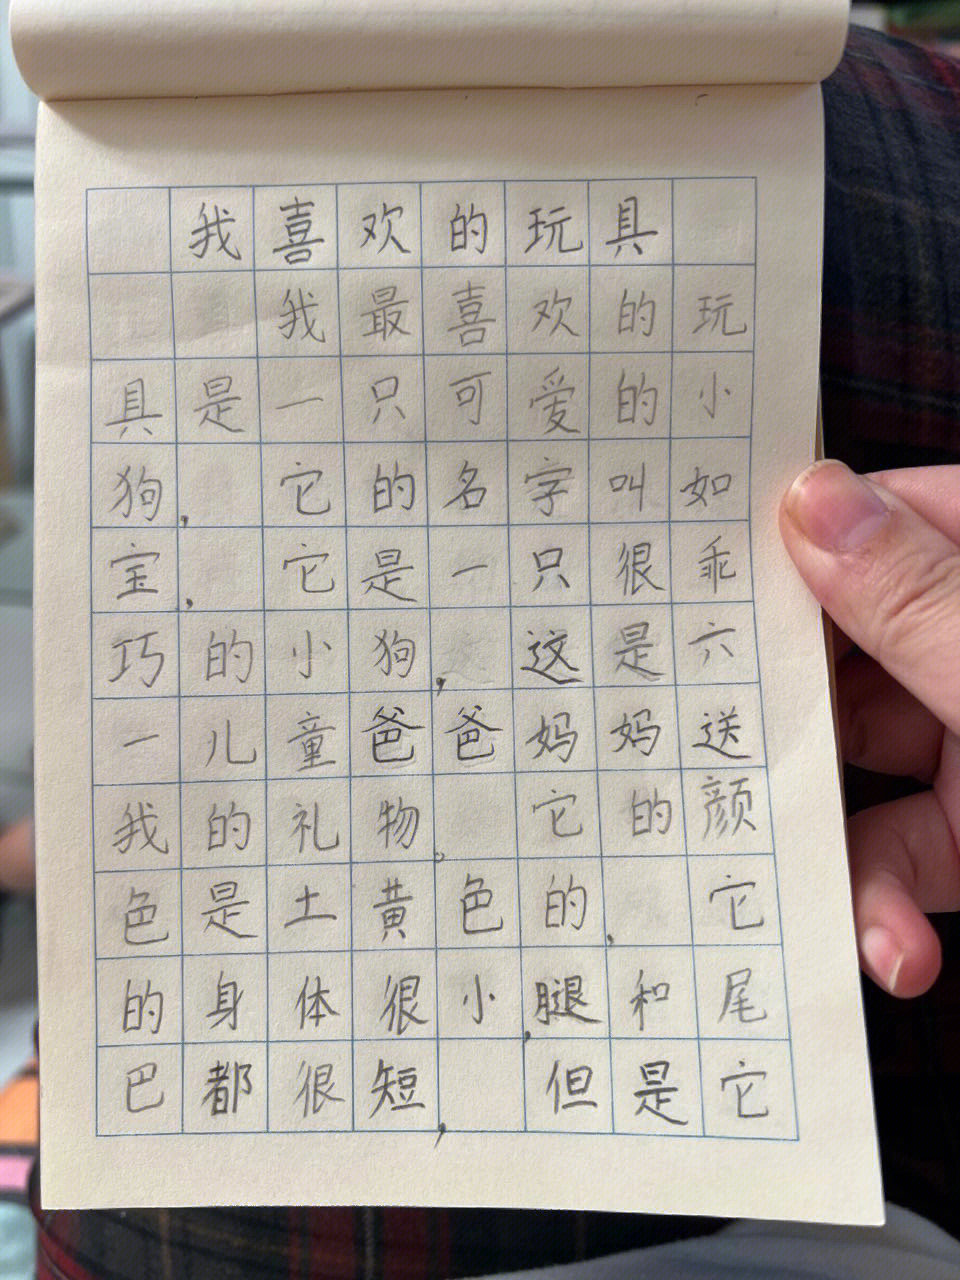 我喜欢的玩具
我最喜欢的玩
具是一只可爱的小
狗，它的名字叫如
宝，它是一只很乖
巧的小狗，这是六
一儿童爸爸妈妈送
我的礼物。它的颜
色是土黄色的，它
的身体很小，腿和尾
巴都很短，但是它